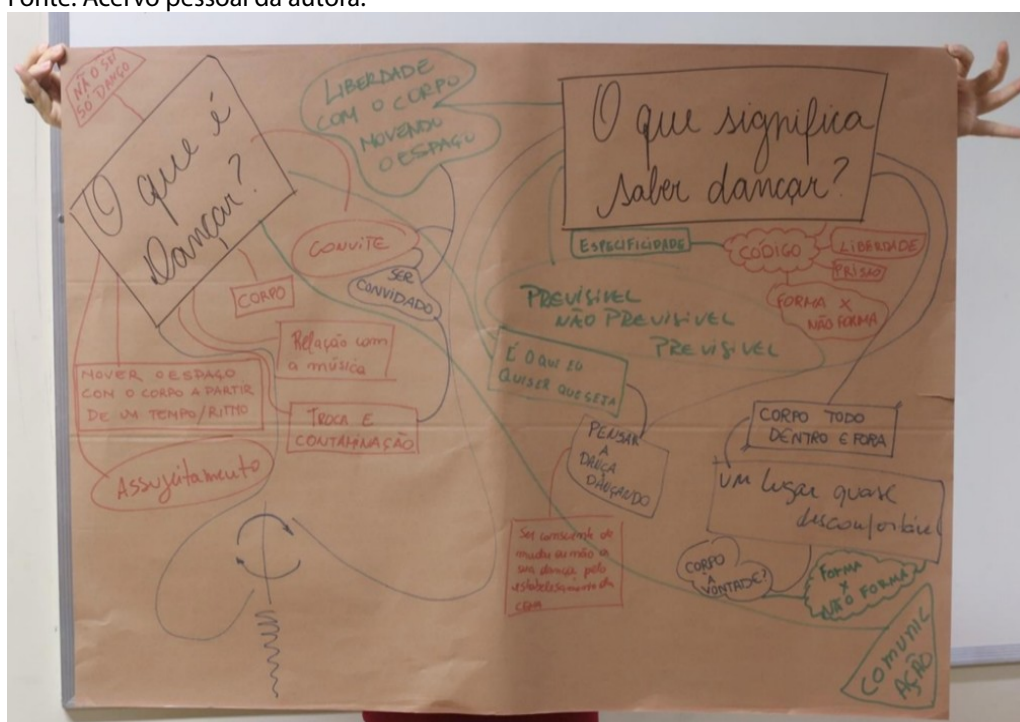 Fonte: Acervo pessoal da autora.
NÃO SEI
SÓ DANÇO
O que é
Dançar?
LIBERDADE
COM O CORPO
MOVENDO
O ESPAÇO
CONVITE
SER
CONVIDADO
CORPO
Relação com
a música
MOVER O ESPAÇO
COM O CORPO A PARTIR
DE UM TEMPO/RITMO
TROCA E
CONTAMINAÇÃO
Assujeitamento
O que significa
saber dançar?
ESPECIFICIDADE
CÓDIGO
LIBERDADE
PRISÃO
FORMA X
NÃO FORMA
PREVISIVEL
NÃO PREVISIVEL
PREVISIVEL
É O QUE EU
QUISER QUE SEJA
PENSAR
A
DANÇA
DANÇANDO
CORPO TODO
DENTRO E FORA
UM lugar quase
desconfortável
Ser consciente de
mudar ou não a
sua dança pelo
estabelecimento da
CENA
CORPO
À
VONTADE?
FORMA
X
NÃO FORMA
COMUNIC
AÇÃO